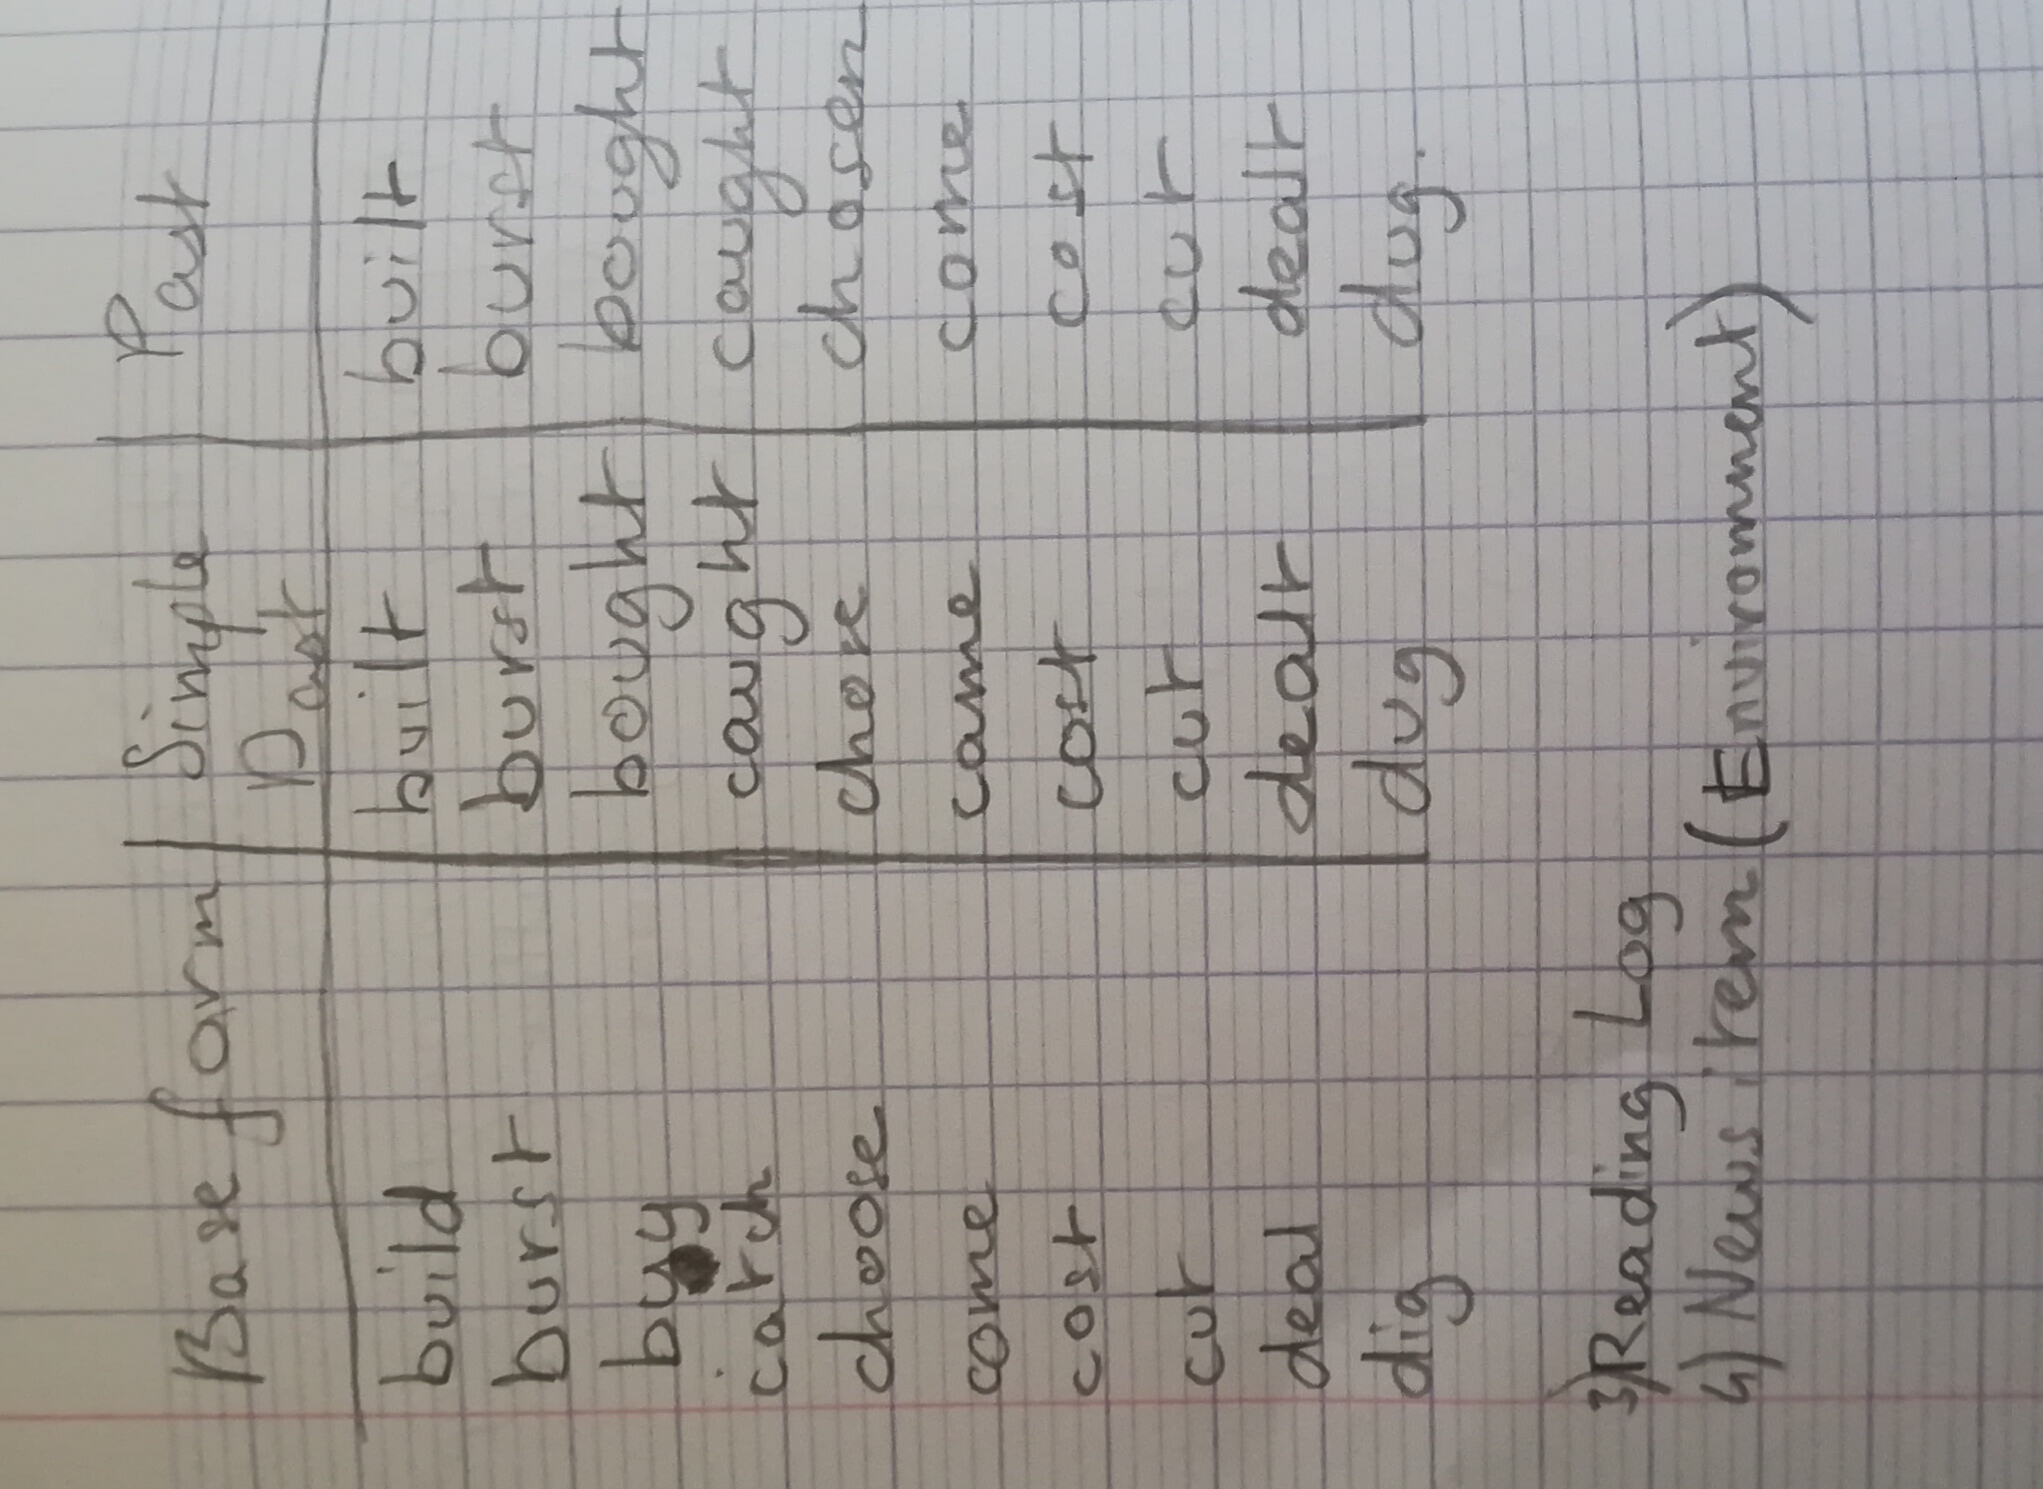 Base form Simple Past Past
build built built
burst burst burst
buy bought bought
catch caught caught
choose chose chosen
come came come
cost cost cost
cut cut cut
deal dealt dealt
dig dug dug.
3) Reading Log
4) News item (Environment)